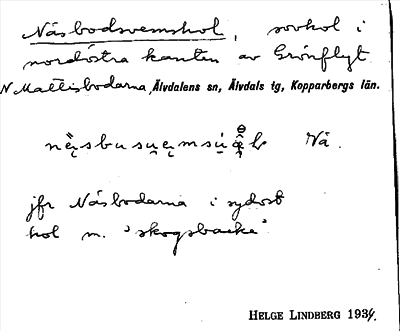 Näsbodsvemshol, sovhol i
nordöstra kanten av Grönflyt
N Mattisbodarna, Älvdalens sn, Älvdals tg, Kopparbergs län.
Nä.
jfr Näsbodarna i sydost
hol m. "skogsbacke"
HELGE LINDBERG 1934.